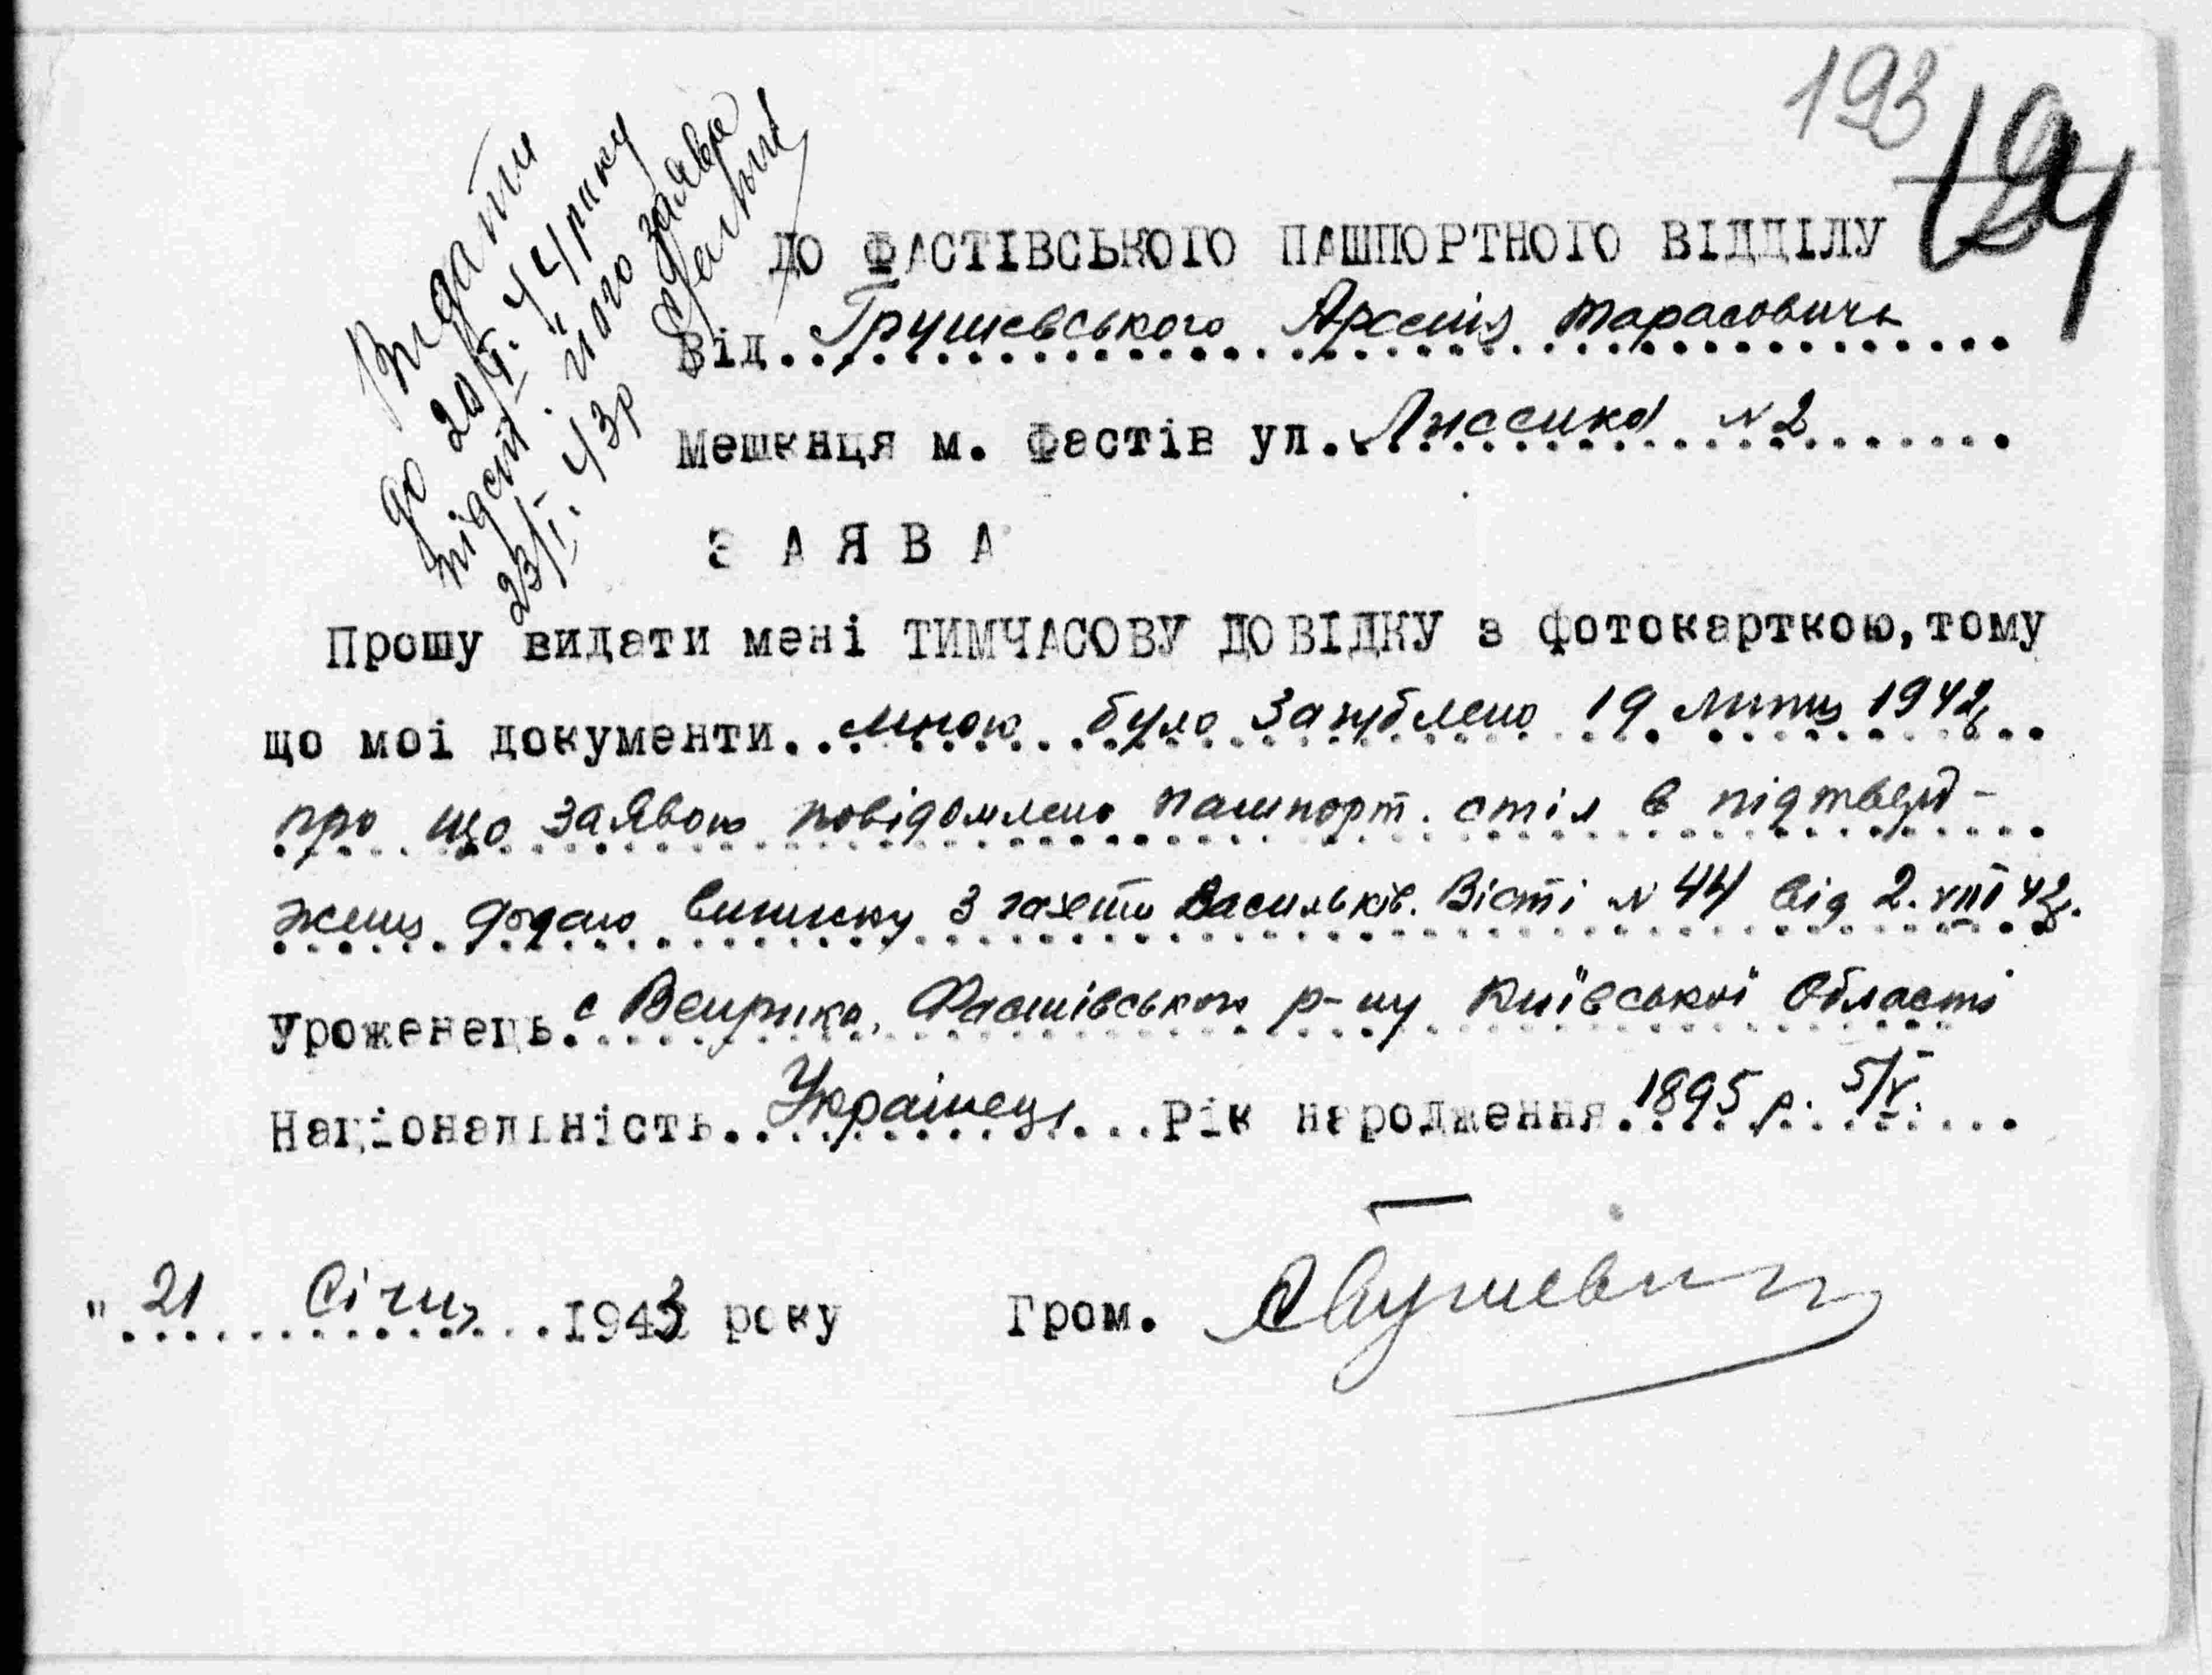 193
194
Видати
до 20/I. 44 року
підст. його заяви
23/I. 43р
ДО ФАСТІВСЬКОГО ПАШПОРТНОГО ВІДДІЛУ
Від Грушевського Арсенія Тарасовича
Мешкнця м. Фастів ул. Лисенка № 2
ЗАЯВА
Прошу видати мені ТИМЧАСОВУ ДОВІДКУ з фотокарткою, тому
що мої документи мною було загублено 19 липня 1942р.
про що заявою повідомлено пашпорт. стіл в підтверд-
ження додаю виписку з газети Васильків. Вісті № 44 від 2.VIII 42р.
Уроженець с Веприка, Фастівського р-ну Київської Області
Національність Українець Рік народження 1895 р. 5/V.
"21 Січня 1943 року Гром.